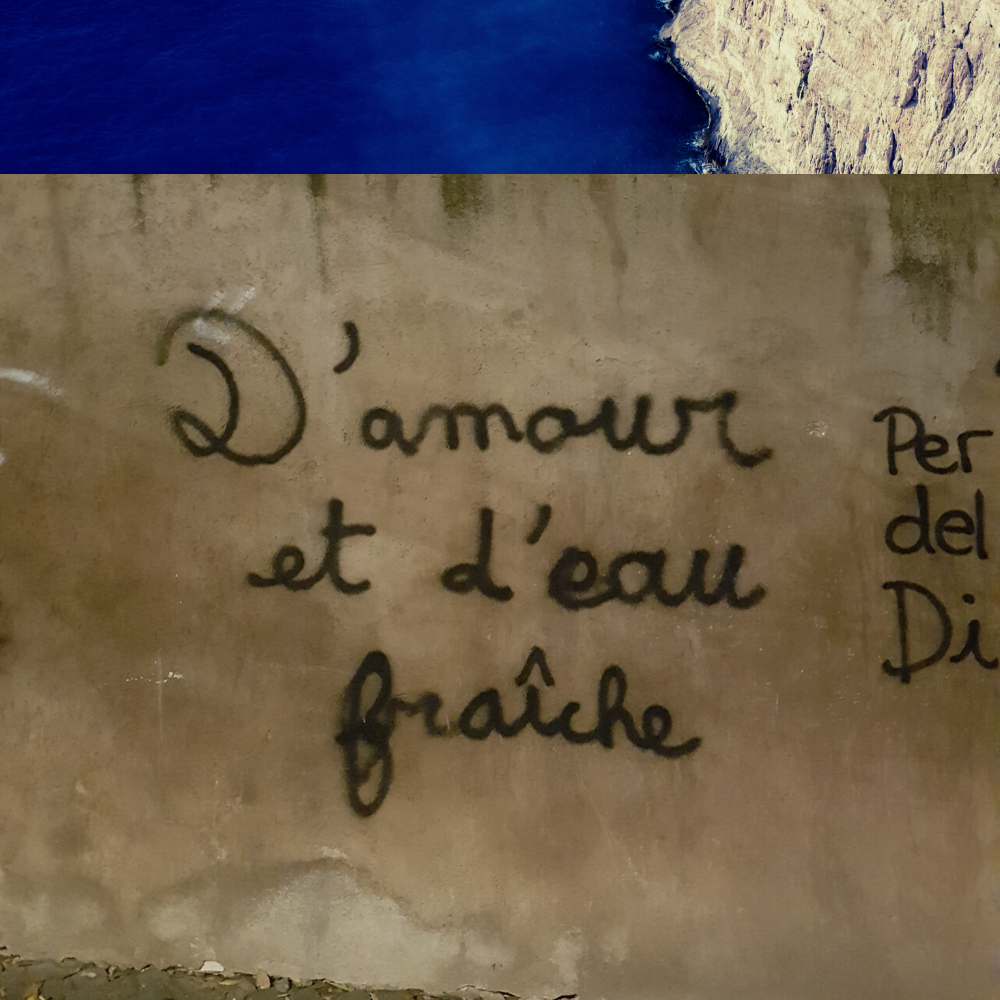 D'amour
et d'eau
fraîche
Per
del
Di